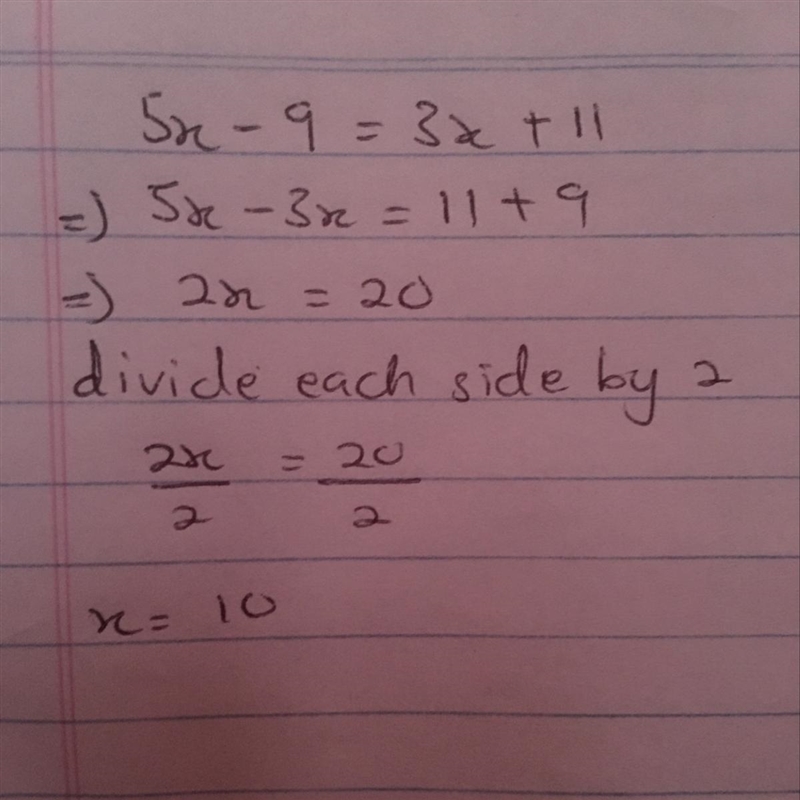 5x - 9 = 3x + 11
=) 5x - 3x = 11 + 9
=) 2x = 20
divide each side by 2
2x/2 = 20/2
x = 10